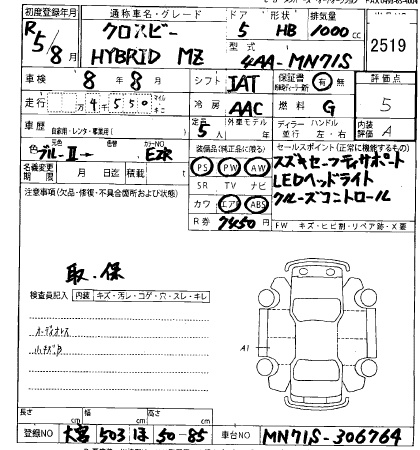 初度登録年月 通称車名・グレード ドア 形状 排気量
R5/8月 クロスビー HYBRID MZ 5 HB 1000cc 2519
型式 4AA-MN71S
車検 8年8月 シフト IAT 保証書 有 無 評価点
走行 万4千550 km マイル 冷房 AAC 燃料 G 5
車歴 自家用・レンタ・事業用( ) 定員 5人 外車モデル 年 ディーラー ハンドル 並行 左・右 内装評価 A
色 元色 ブルーII→ カラーNO EZR 装備品(純正品に限る) セールスポイント(正常に機能するもの)
名義変更期限 月 日迄 積載 PS PW AW スズキセーフティサポート
注意事項(欠品・修復・不具合箇所および状態) SR TV ナビ LEDヘッドライト
カワ エアB ABS クルーズコントロール
R券 7450円 FW キズ・ヒビ割・リペア跡・X要
取.保
検査員記入 内装 キズ・汚レ・コゲ・穴・スレ・キレ
オーディオレス
A1
長さ cm 幅 cm 高さ cm
登録NO 大宮 503 ほ 50-85 車台NO MN71S-306764